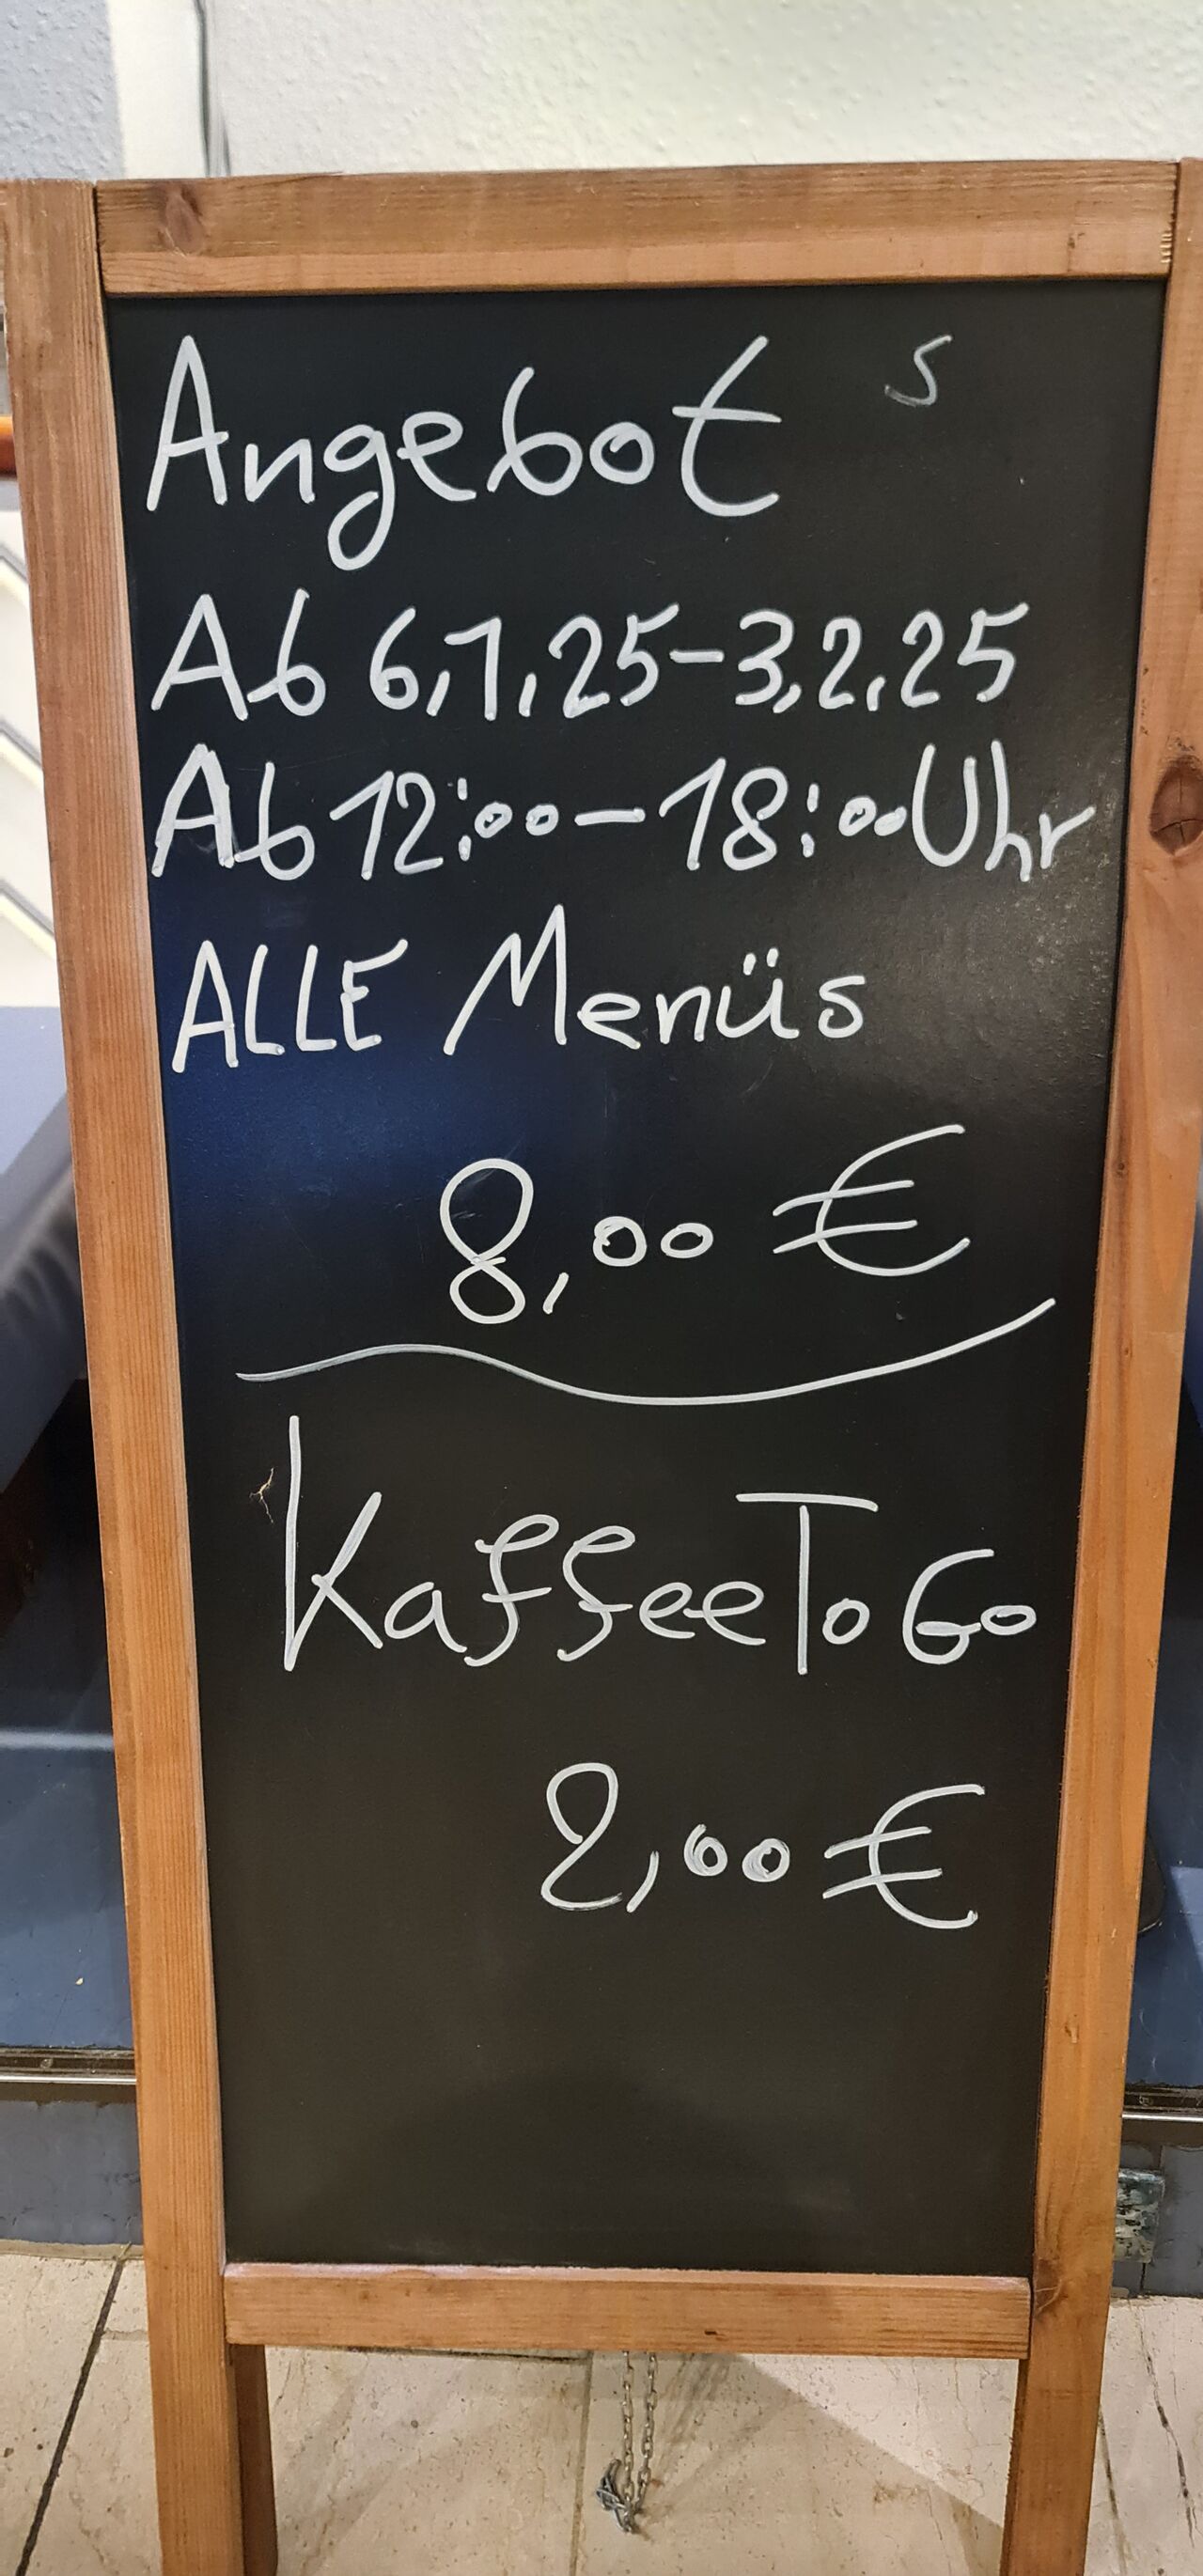 Angebot s
Ab 6,1,25-3,2,25
Ab 12:00-18:00 Uhr
ALLE Menüs
8,00 €
Kaffee To Go
2,00 €